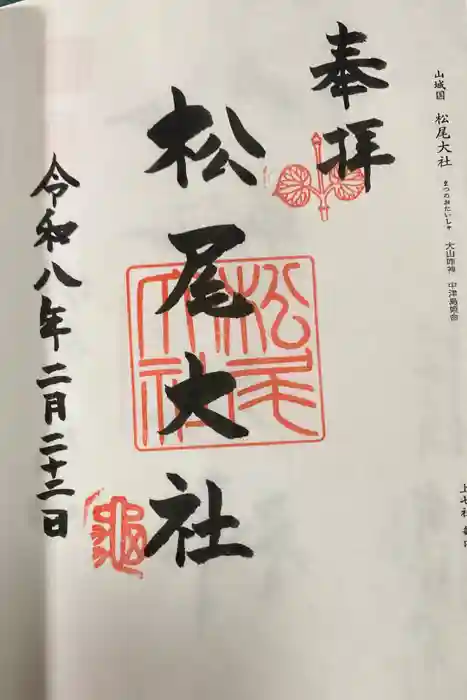 山城国 松尾大社 まつのおたいしゃ 大山咋神 中津島姫命
奉拝
松尾大社
松尾大社
令和八年二月二十二日